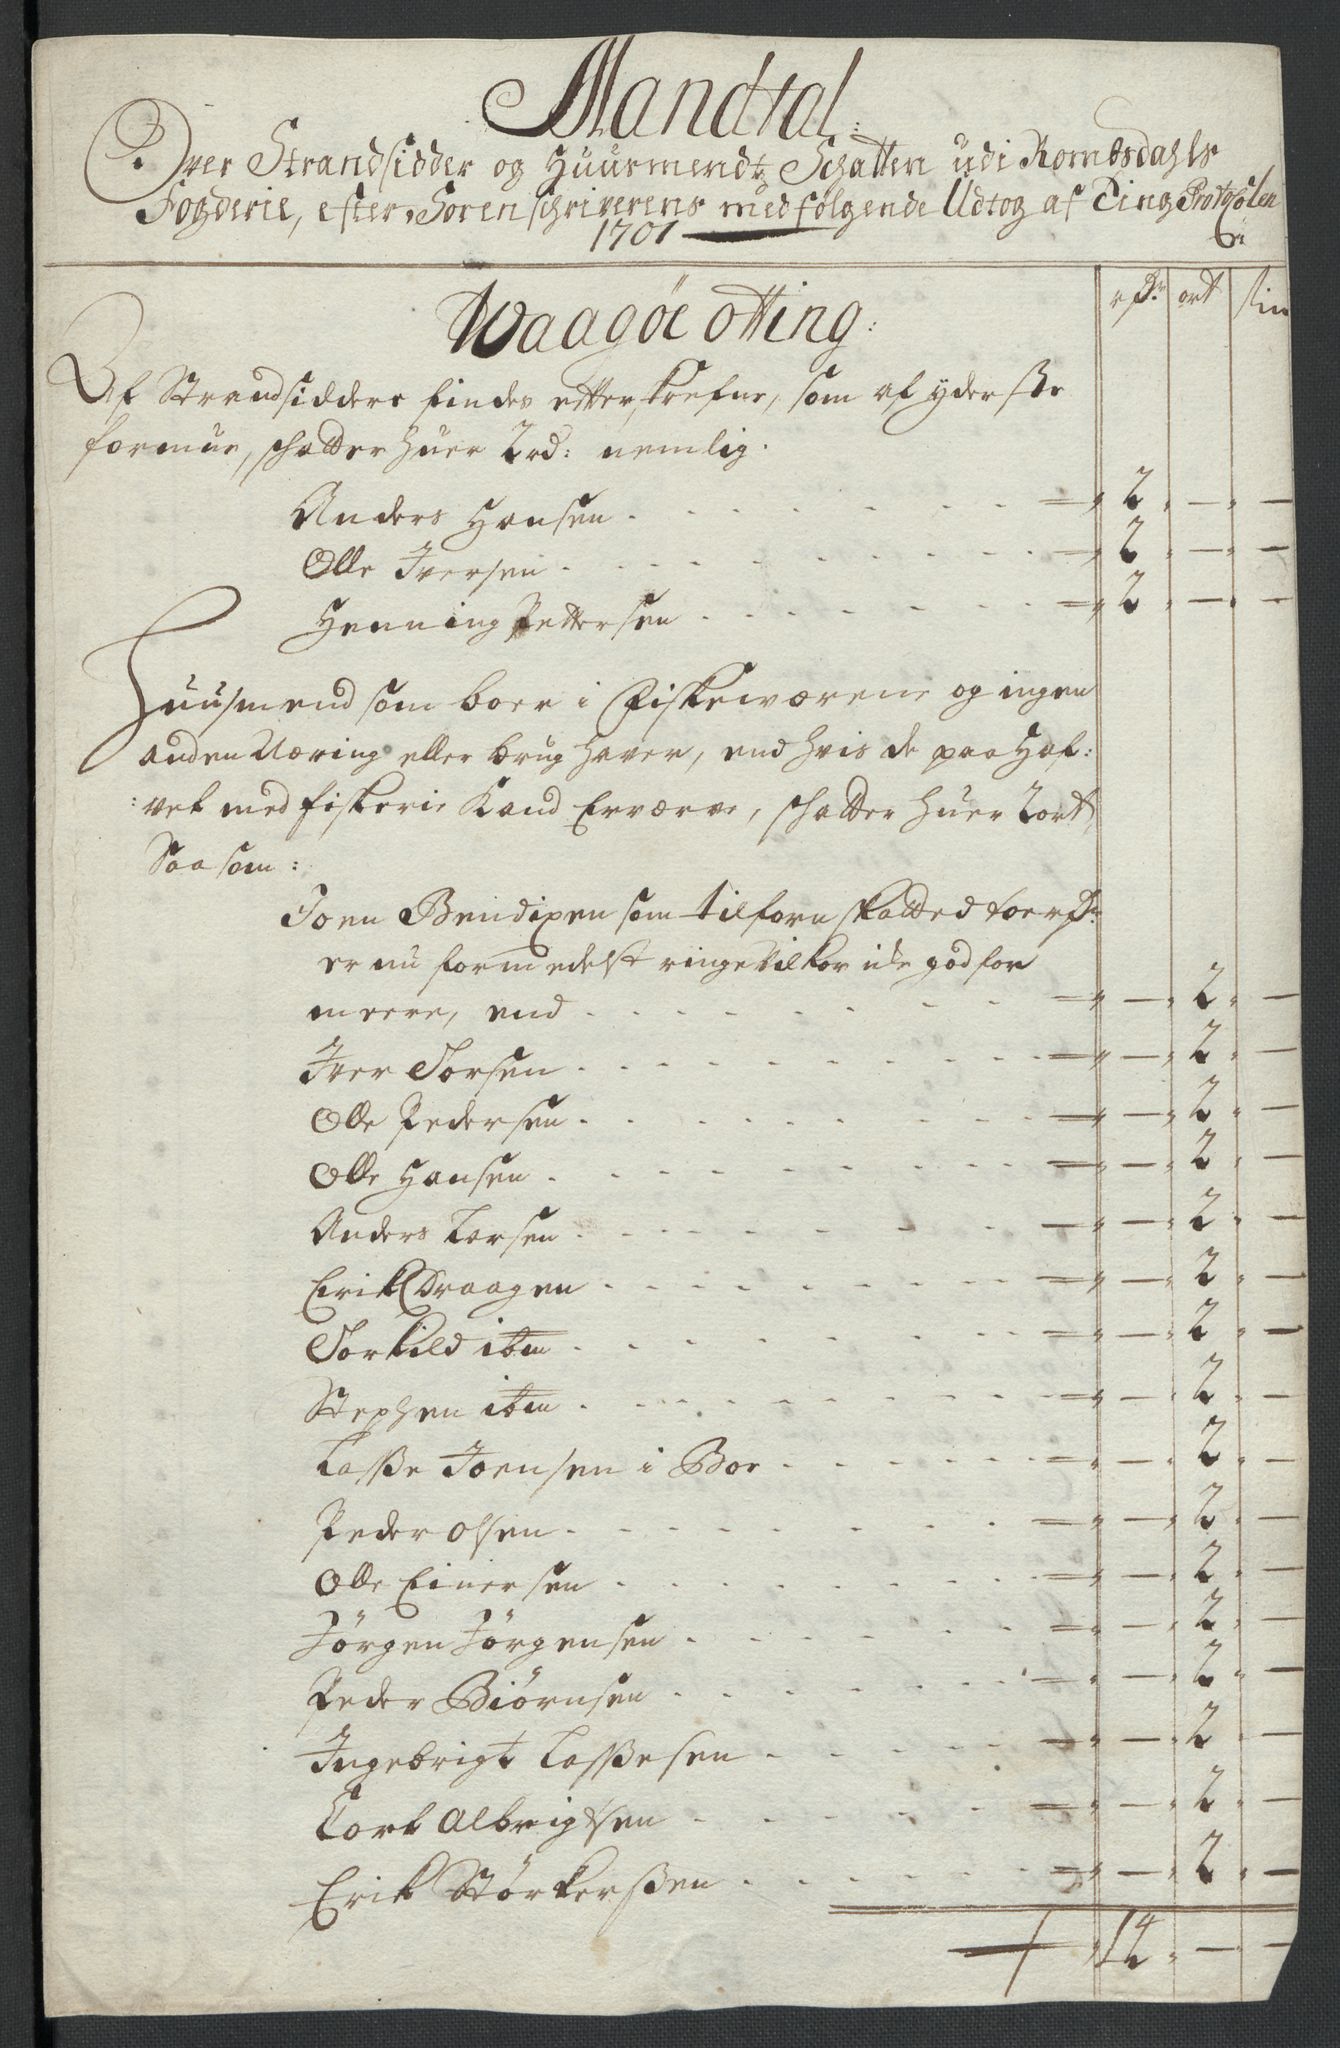 Mandtal
Over Strandsidder og Huusmends Schatten udi Rombsdahls
Fogderie, efter Sorenschriverens medfølgende Udtog af Ting Protocolen
1701
rdr ort
Waagöe otting:
Af Strandsiddere findes efterskrefne, som af yderste
formue, schatter huer 2 rd: nemlig.
Anders Hansen . . . 2 . — . —
Olle Iversen . . . 2 . — . —
Henning Pettersen . . . 2 . — . —
Huusmend som boer i Fiskeværene og ingen
anden Næring eller brug haver, end hvis de paa Haf:
:vet med fiskerie Kand Erværve, schatter huer 2 ort
Saasom:
Joen Bendixen som tilforn skatted toe rdr
er nu formedelst ringe Vilkor icke god for
meere, end . . . — . 2 . —
Iver Torsen . . . — . 2 . —
Olle Pedersen . . . — . 2 . —
Olle Hansen . . . — . 2 . —
Anders Larsen . . . — . 2 . —
Erik Draagen . . . — . 2 . —
Torkild ibm . . . — . 2 . —
Stephen ibm . . . — . 2 . —
Lasse Joensen i Bor . . . — . 2 . —
Peder Olsen . . . — . 2 . —
Olle Einersen . . . — . 2 . —
Jørgen Jørgensen . . . — . 2 . —
Peder Biørnsen . . . — . 2 . —
Ingebrigt Lassesen . . . — . 2 . —
Albrigtsen . . . — . 2 . —
Erik Størkerssen . . . — . 2 . —
14 . — —